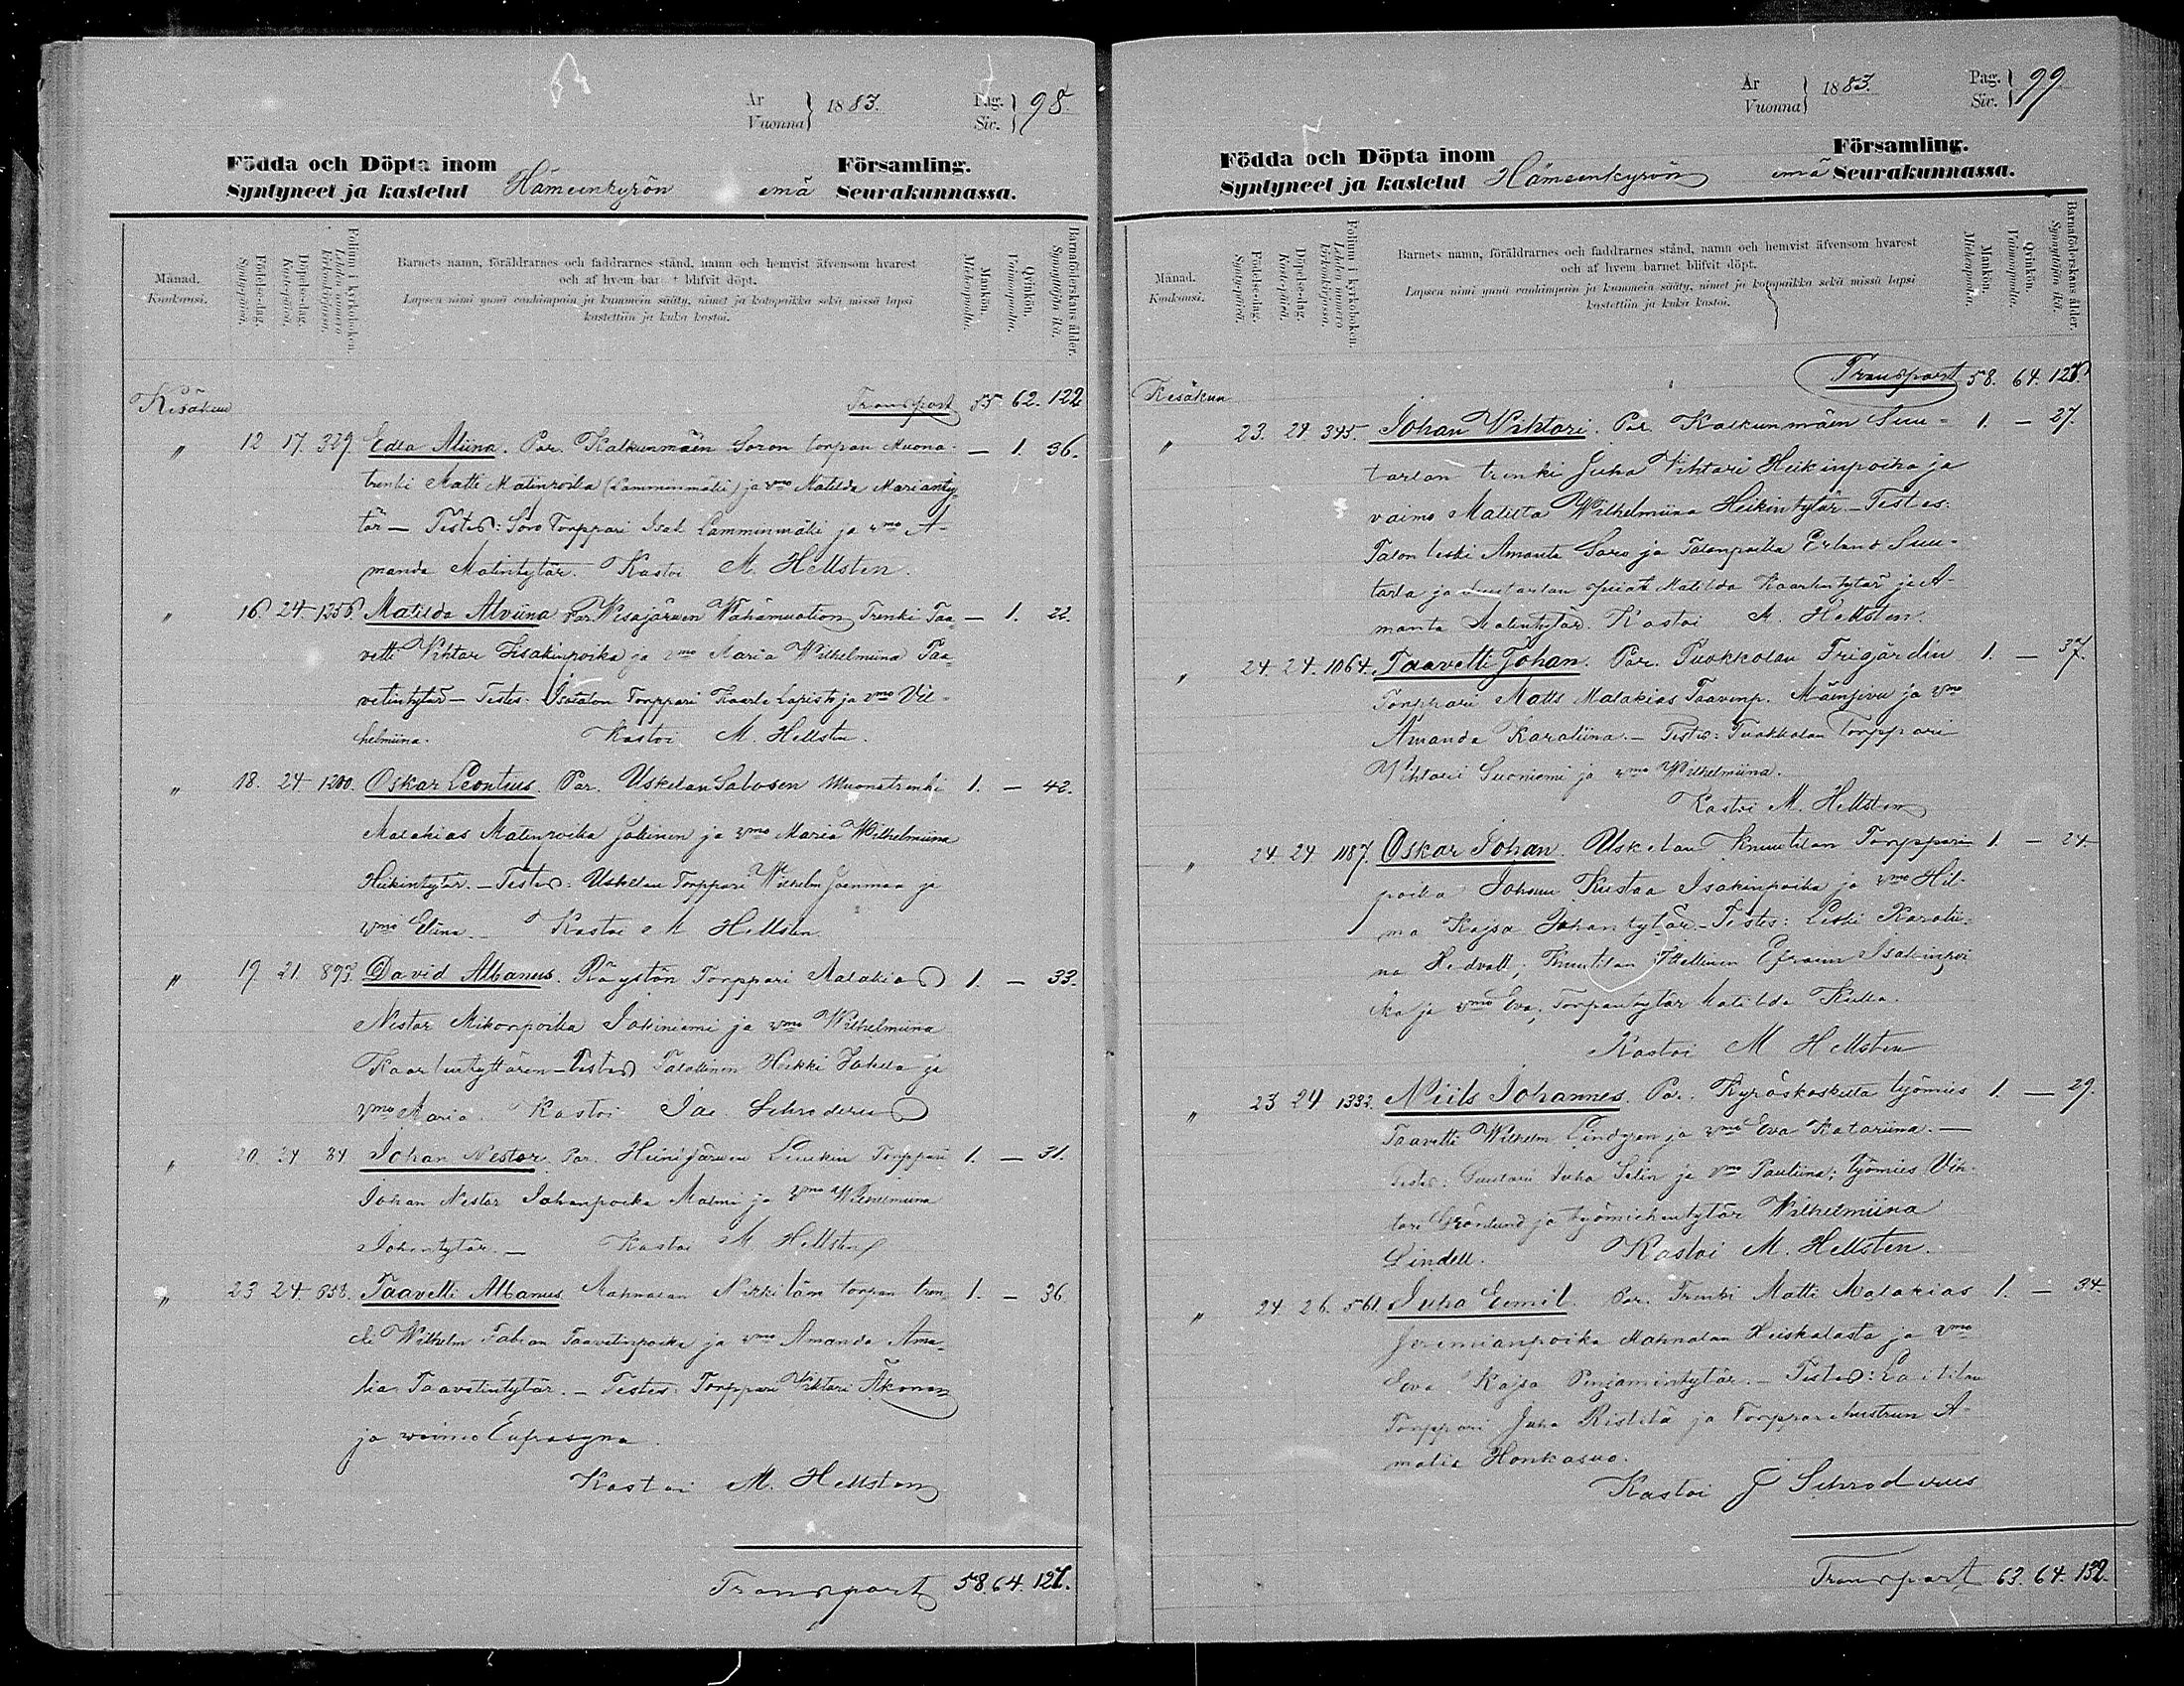 År
Vuonna } 1883.
Pag.
Siv. } 98
Födda och Döpta inom
Syntyneet ja kastetut Hämeenkyrön emä Församling.
Seurakunnassa.
Månad.
Kuukausi.
Födelse-dag.
Syntypäivä.
Döpelse-dag.
Kaste-päivä.
Folium i kyrkoboken.
Lehden numero kirkonkirjassa.
Barnets namn, föräldrarnes och faddrarnes stånd, namn och hemvist äfvensom hvarest
och af hvem barnet blifvit döpt.
Lapsen nimi ynnä vanhimpain ja kummein sääty, nimet ja kotopaikka sekä missä lapsi
kastettiin ja kuka kastoi.
Mankön.
Miehenpuolia.
Qvinkön.
Vaimonpuolia.
Barnaföderskans ålder.
Synnyttäjän ikä.
Kesäkuu Transport 55 62. 122
" 12 17. 329. Edla Aliina. Par. Kalkunmäen Soron torpan Muona- — 1. 36.
trenki Matti Matinpoika (Lamminmäki) ja vmo Matilda Marianty-
tär — Testes: Soro Torppari Isak Lamminmäki ja vmo A-
manda Matintytär. Kastoi M. Hellsten.
" 16 24 1256 Matilda Alviina Par. Wesajärwen Wähämuation Trenki Taa- — 1. 22.
vetti Vihtar Iisakinpoika ja vmo Maria Wilhelmiina Taa-
vetintytär — Testes: Isotalon Torppari Kaarle Lapisto ja vmo Vil-
helmiina. Kastoi M. Hellsten.
" 18. 24 1200. Oskar Leontius. Par. Uskelan Sabosen Muonatrenki 1. — 42.
Malakias Matinpoika Jokinen ja vmo Maria Wilhelmiina
Heikintytär. — Testes: Uskelan Torppari Wilhelm Joenmaa ja
vmo Elina. — Kastoi M Hellsten
" 19. 21. 897. David Albanus. Röystön Torppari Malakias 1. — 33.
Nestor Mikonpoika Jokiniemi ja vmo Wilhelmiina
Kaarlentyttären — Testes Talollinen Heikki Jokela ja
vmo Maria. Kastoi Jac. Schroderus
" 20. 24 84 Johan Nestor. Par. Heinijärwen Luukin Torppari 1. — 31.
Johan Nestor Johanpoika Malmi ja vmo Wilhelmiina
Johantytär. — Kastoi M. Hellsten
" 23 24. 658. Taavetti Albanus Mahnalan Nikkilän torpan tren- 1. — 36
ki Wilhelm Fabian Taavetinpoika ja vmo Amanda Ama-
lia Taavetintytär. — Testes: Torppari Vihtori Äkönen
ja vaimo Eufrasyna.
Kastoi M. Hellsten
Transport 58. 64. 127.
År
Vuonna } 1883.
Pag.
Siv. } 99
Födda och Döpta inom
Syntyneet ja kastetut Hämeenkyrön emä Församling.
Seurakunnassa.
Månad.
Kuukausi.
Födelse-dag.
Syntypäivä.
Döpelse-dag.
Kaste-päivä.
Folium i kyrkoboken.
Lehden numero kirkonkirjassa.
Barnets namn, föräldrarnes och faddrarnes stånd, namn och hemvist äfvensom hvarest
och af hvem barnet blifvit döpt.
Lapsen nimi ynnä vanhimpain ja kummein sääty, nimet ja kotopaikka sekä missä lapsi
kastettiin ja kuka kastoi.
Mankön.
Miehenpuolia.
Qvinkön.
Vaimonpuolia.
Barnaföderskans ålder.
Synnyttäjän ikä.
Kesäkuu Transport 58. 64. 127.
" 23. 24 345. Johan Vihtari. Par. Kalkunmäen Suu- 1. — 27.
tarlan trenki Juha Vihtari Heikinpoika ja
vaimo Matilta Wilhelmiina Heikintytär — Testes:
Talon leski Amanta Soro ja Talonpoika Erland Suu-
tarla ja Suutarlan piiat Matilda Kaarlentytär ja A-
manta Matintytär. Kastoi M. Hellsten.
" 24. 24. 1064. Taavetti Johan. Par. Tuokkolan Frigårdin 1. — 37.
Torppari Matts Malakias Taavinp. Mäensivu ja vmo
Amanda Karoliina. — Testes: Tuokkolan Torppari
Vihtori Suoniemi ja vmo Wilhelmiina.
Kastoi M. Hellsten
" 24 24 1187. Oskar Johan. Uskelan Knuutilan Torpparin 1. — 24
poika Johan Kustaa Isakinpoika ja vmo Hil-
ma Kajsa Johantytär — Testes: Leski Karolii-
na Hedvall, Knuutilan Itsellinen Efraim Isakinpoi
ka ja vmo Eva, Torpantytär Matilda Kulla.
Kastoi M Hellsten
" 23 24 1332. Niils Johannes. Par. Kyröskoskelta työmies 1. — 29.
Taavetti Wilhelm Lindgren ja vmo Eva Katariina. —
Testes: Suutari Juha Selin ja vmo Pauliina; työmies Vih-
tori Grönlund ja työmiehentytär Wilhelmiina
Lindell. Kastoi M. Hellsten.
" 24 26. 561. Juha Eemil. Par. Trenki Matti Malakias 1. — 34.
Jeremianpoika Mahnalan Heiskalasta ja vmo
Eva Kajsa Penjamintytär. — Testes: Laitilan
Torppari Juha Ristilä ja Torpparihustrun A-
malia Honkasuo.
Kastoi J Schroderus
Transport 63. 64. 132.